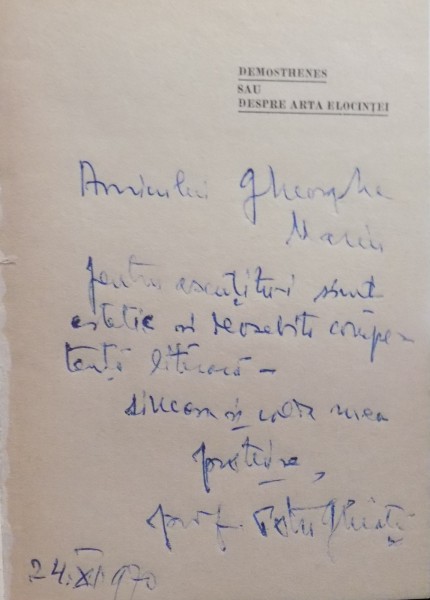 DEMOSTHENES
SAU
DESPRE ARTA ELOCINȚEI
Amicului Gheorghe
Marin
pentru ascuțitul simț
estetic și deosebita compe-
tență literară –
sincera și calda mea
prețuire,
prof.
24.XI.970